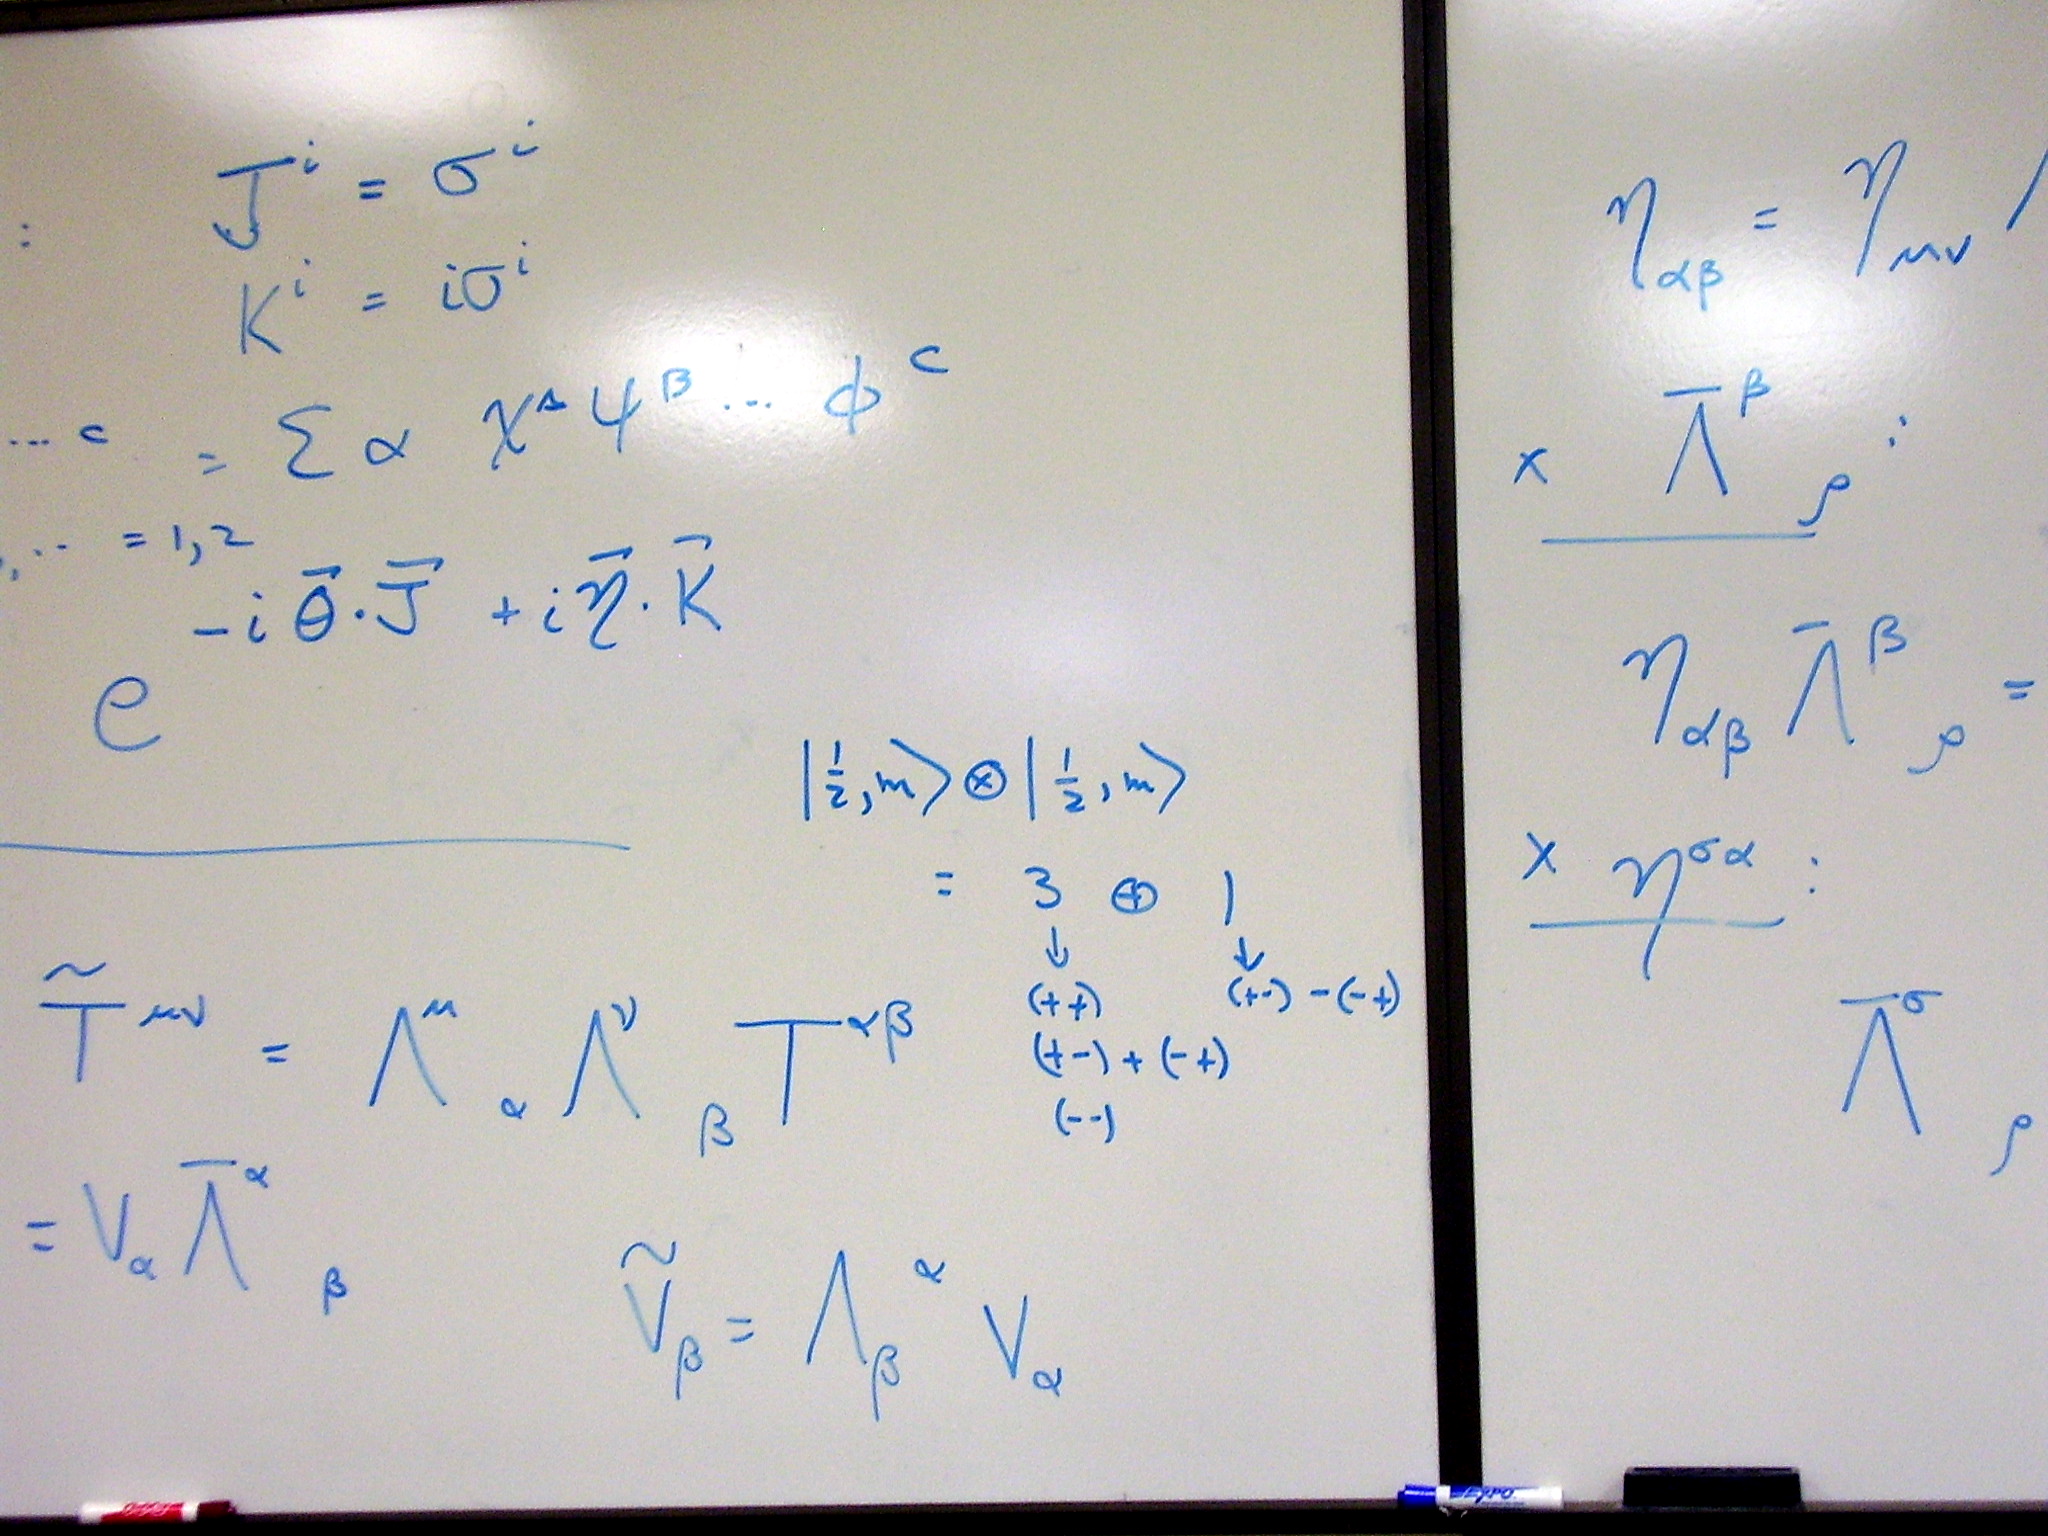 : J^i = σ^i
K^i = iσ^i
... c = Σ α χ^A ψ^B ... φ^c
,.. = 1,2
e^{-i θ⃗·J⃗ + i η⃗·K⃗}
|½,m⟩⊗|½,m⟩
= 3 ⊕ 1
↓ ↓
(++) (+-) -(-+)
(+-) + (-+)
(--)
T̃^{μν} = Λ^μ_α Λ^ν_β T^{αβ}
= V_α Λ̄^α_β
Ṽ_β = Λ_β^α V_α
η_{αβ} = η_{μν}
x Λ̄^β_ρ :
η_{αβ} Λ̄^β_ρ =
x η^{σα} :
Λ̄^σ_ρ
EXPO